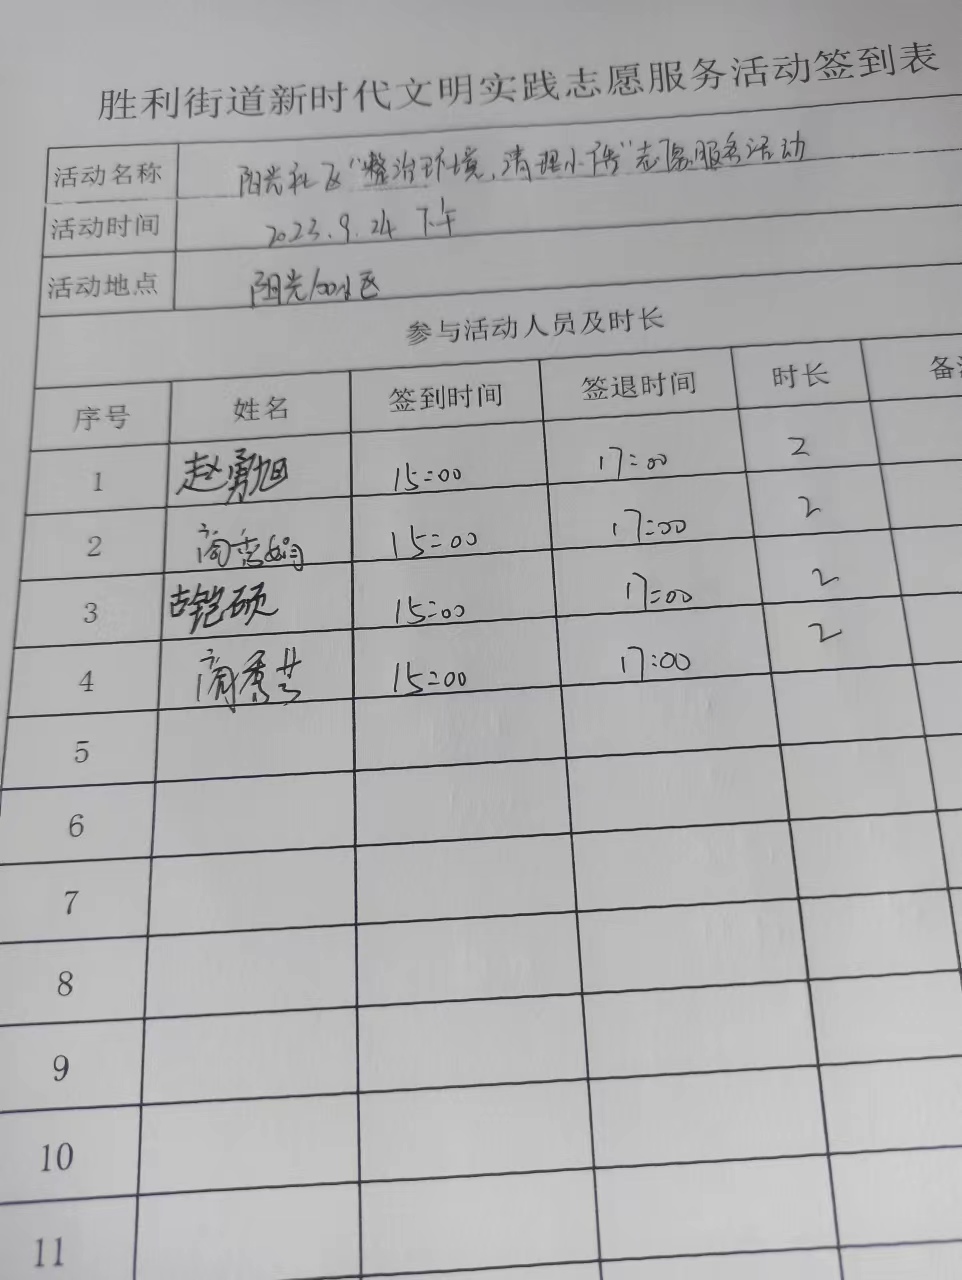 胜利街道新时代文明实践志愿服务活动签到表
活动名称 阳光社区“整治环境,清理小广告”志愿服务活动
活动时间 2023.9.24 下午
活动地点 阳光100小区
参与活动人员及时长
序号 姓名 签到时间 签退时间 时长 备
1 赵勇旭 15:00 17:00 2
2 15:00 17:00 2
3 古铠硕 15:00 17:00 2
4 15:00 17:00 2
5
6
7
8
9
10
11